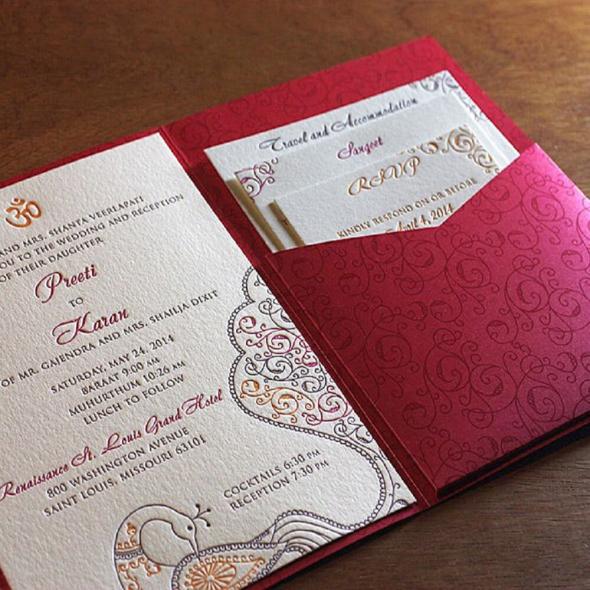 ॐ
AND MRS. SHANTA VEERLAPATI
YOU TO THE WEDDING AND RECEPTION
OF THEIR DAUGHTER
Preeti
TO
Karan
OF MR. GAJENDRA AND MRS. SHAILJA DIXIT
SATURDAY, MAY 24, 2014
BARAAT 9:00 AM
MUHURTHUM 10:26 AM
LUNCH TO FOLLOW
Renaissance St. Louis Grand Hotel
800 WASHINGTON AVENUE
SAINT LOUIS, MISSOURI 63101
COCKTAILS 6:30 PM
RECEPTION 7:30 PM
Travel and Accommodation
Sangeet
RSVP
KINDLY RESPOND ON OR BEFORE
April 4, 2014